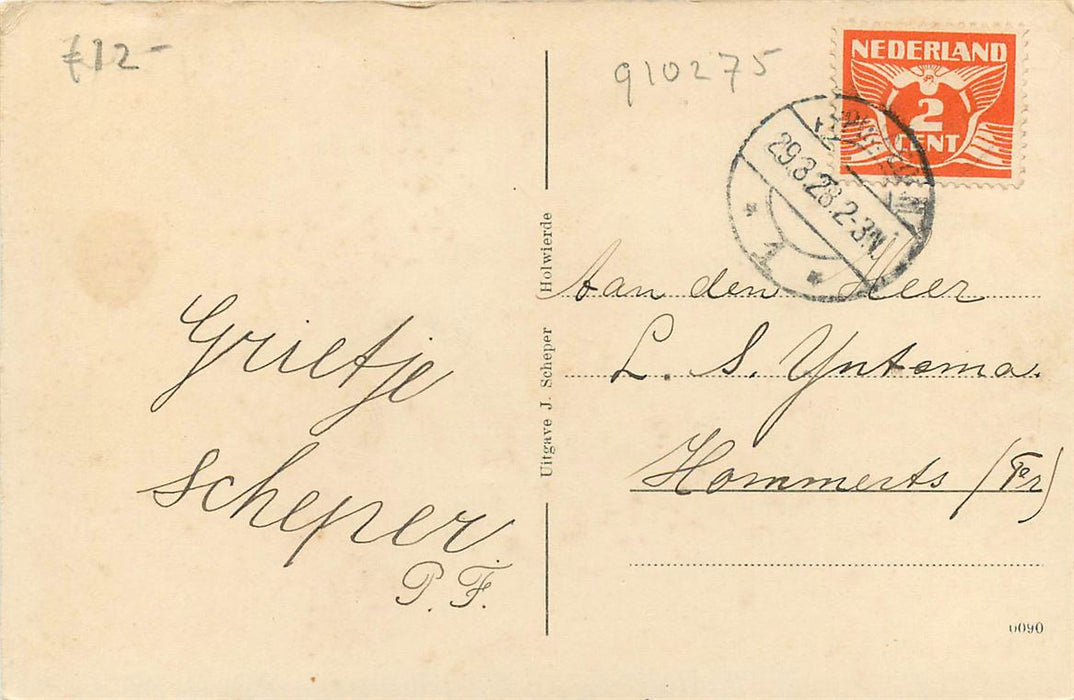 €12-
910275
NEDERLAND
2
CENT
29.3.28.2-3N
1
Grietje
Scheper
P.F.
Uitgave J. Scheper Holwierde
Aan den Heer
L. S. Yntema.
Hommerts (Fr)
0090